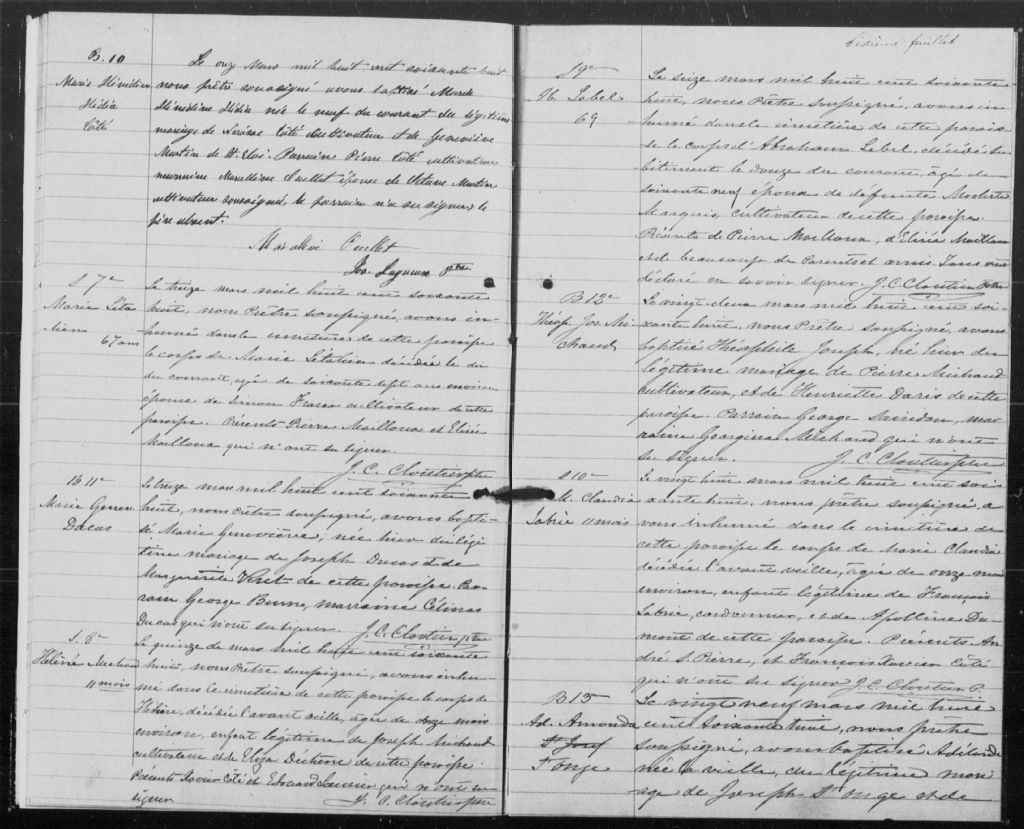 B. 10
Marie
Hédia
Côté
Le onze Mars mil huit cent soixante huit
nous prêtre soussigné avons baptisé Marie
Hédia née le neuf du courant du légitime
mariage de Côté cultivateur et de Geneviève
Martin de St. Eloi. Parrain Pierre Côté cultivateur
marraine Ouellet épouse de Octave Martin
cultivateur soussignés, le parrain n'a su signer, le
père absent.
Ouellet
Jos. Lagueux Ptre
S 7e
Marie Sita-
lien
67 ans
Le treize mars mil huit cent soixante
huit, nous Prêtre soussigné, avons in-
humé dans le cimetière de cette paroisse
le corps de Marie décédée le dix
du courant, agé de soixante sept ans environ
épouse de Simon Fraser cultivateur de cette
paroisse. Présents Pierre Mailloux et Elisée
Mailloux qui n'ont su signer.
J. C. Cloutier ptre
B 11e
Marie Genev.
Ducas
Le treize mars mil huit cent soixante
huit, nous Prêtre soussigné, avons bapti-
sé Marie Geneviève, née hier du légi-
time mariage de Joseph Ducas et de
Marguerite Veret de cette paroisse. Par-
rain George Burns, marraine Célinas
Ducas qui n'ont su signer. J. C. Cloutier ptre
S. 8e
Michaud
11 mois
Le quinze de mars mil huit cent soixante
huit, nous Prêtre soussigné, avons inhu-
mé dans le cimetière de cette paroisse le corps de
décédée l'avant veille, agée de onze mois
environ, enfant légitime de Joseph Michaud
cultivateur et de Eliza de cette paroisse.
Présents Xavier Côté et Edouard qui n'ont su
signer J. C. Cloutier ptre
Sixième feuillet
S 9e
Ab. Lebel
69
Le seize mars mil huit cent soixante
huit, nous Prêtre soussigné, avons in-
humé dans le cimetière de cette parois-
se le corps d'Abraham Lebel, décédé su-
bitement le douze du courant, agé de
soixante neuf époux de défunte Modeste
Marquis, cultivateur de cette paroisse.
Présents de Pierre Mailloux, d'Elisée Mailloux
et de beaucoup de Parents et amis. Tous ont
déclaré ne savoir signer. J. C. Cloutier Ptre
B 12e
Théop. Jos. Mi-
chaud
Le vingt-deux mars mil huit cent soi-
xante huit, nous Prêtre soussigné, avons
baptisé Théophile Joseph, né hier du
légitime mariage de Pierre Michaud
cultivateur, et de Henriette Daris de cette
paroisse. Parrain George mar-
raine Georgina Michaud qui n'ont
su signer. J. C. Cloutier ptre
S 10e
M. Claudia
Labrie 11 mois
Le vingt huit mars mil huit cent soi-
xante huit, nous prêtre soussigné a-
vons inhumé dans le cimetière de
cette paroisse le corps de Marie Claudia
décédée l'avant veille, agée de onze mois
environ, enfant légitime de François
Labrie, cordonnier, et de Apolline Du-
mont de cette paroisse. Présents An-
dré S. Pierre, et François Xavier Côté
qui n'ont su signer J. C. Cloutier P.
B 13
Ad. Amanda
St Josef
St onge
Le vingt neuf mars mil huit
cent soixante huit, nous prêtre
soussigné, avons baptisé Adélaïde
née la veille, du légitime mari-
age de Joseph St onge et de